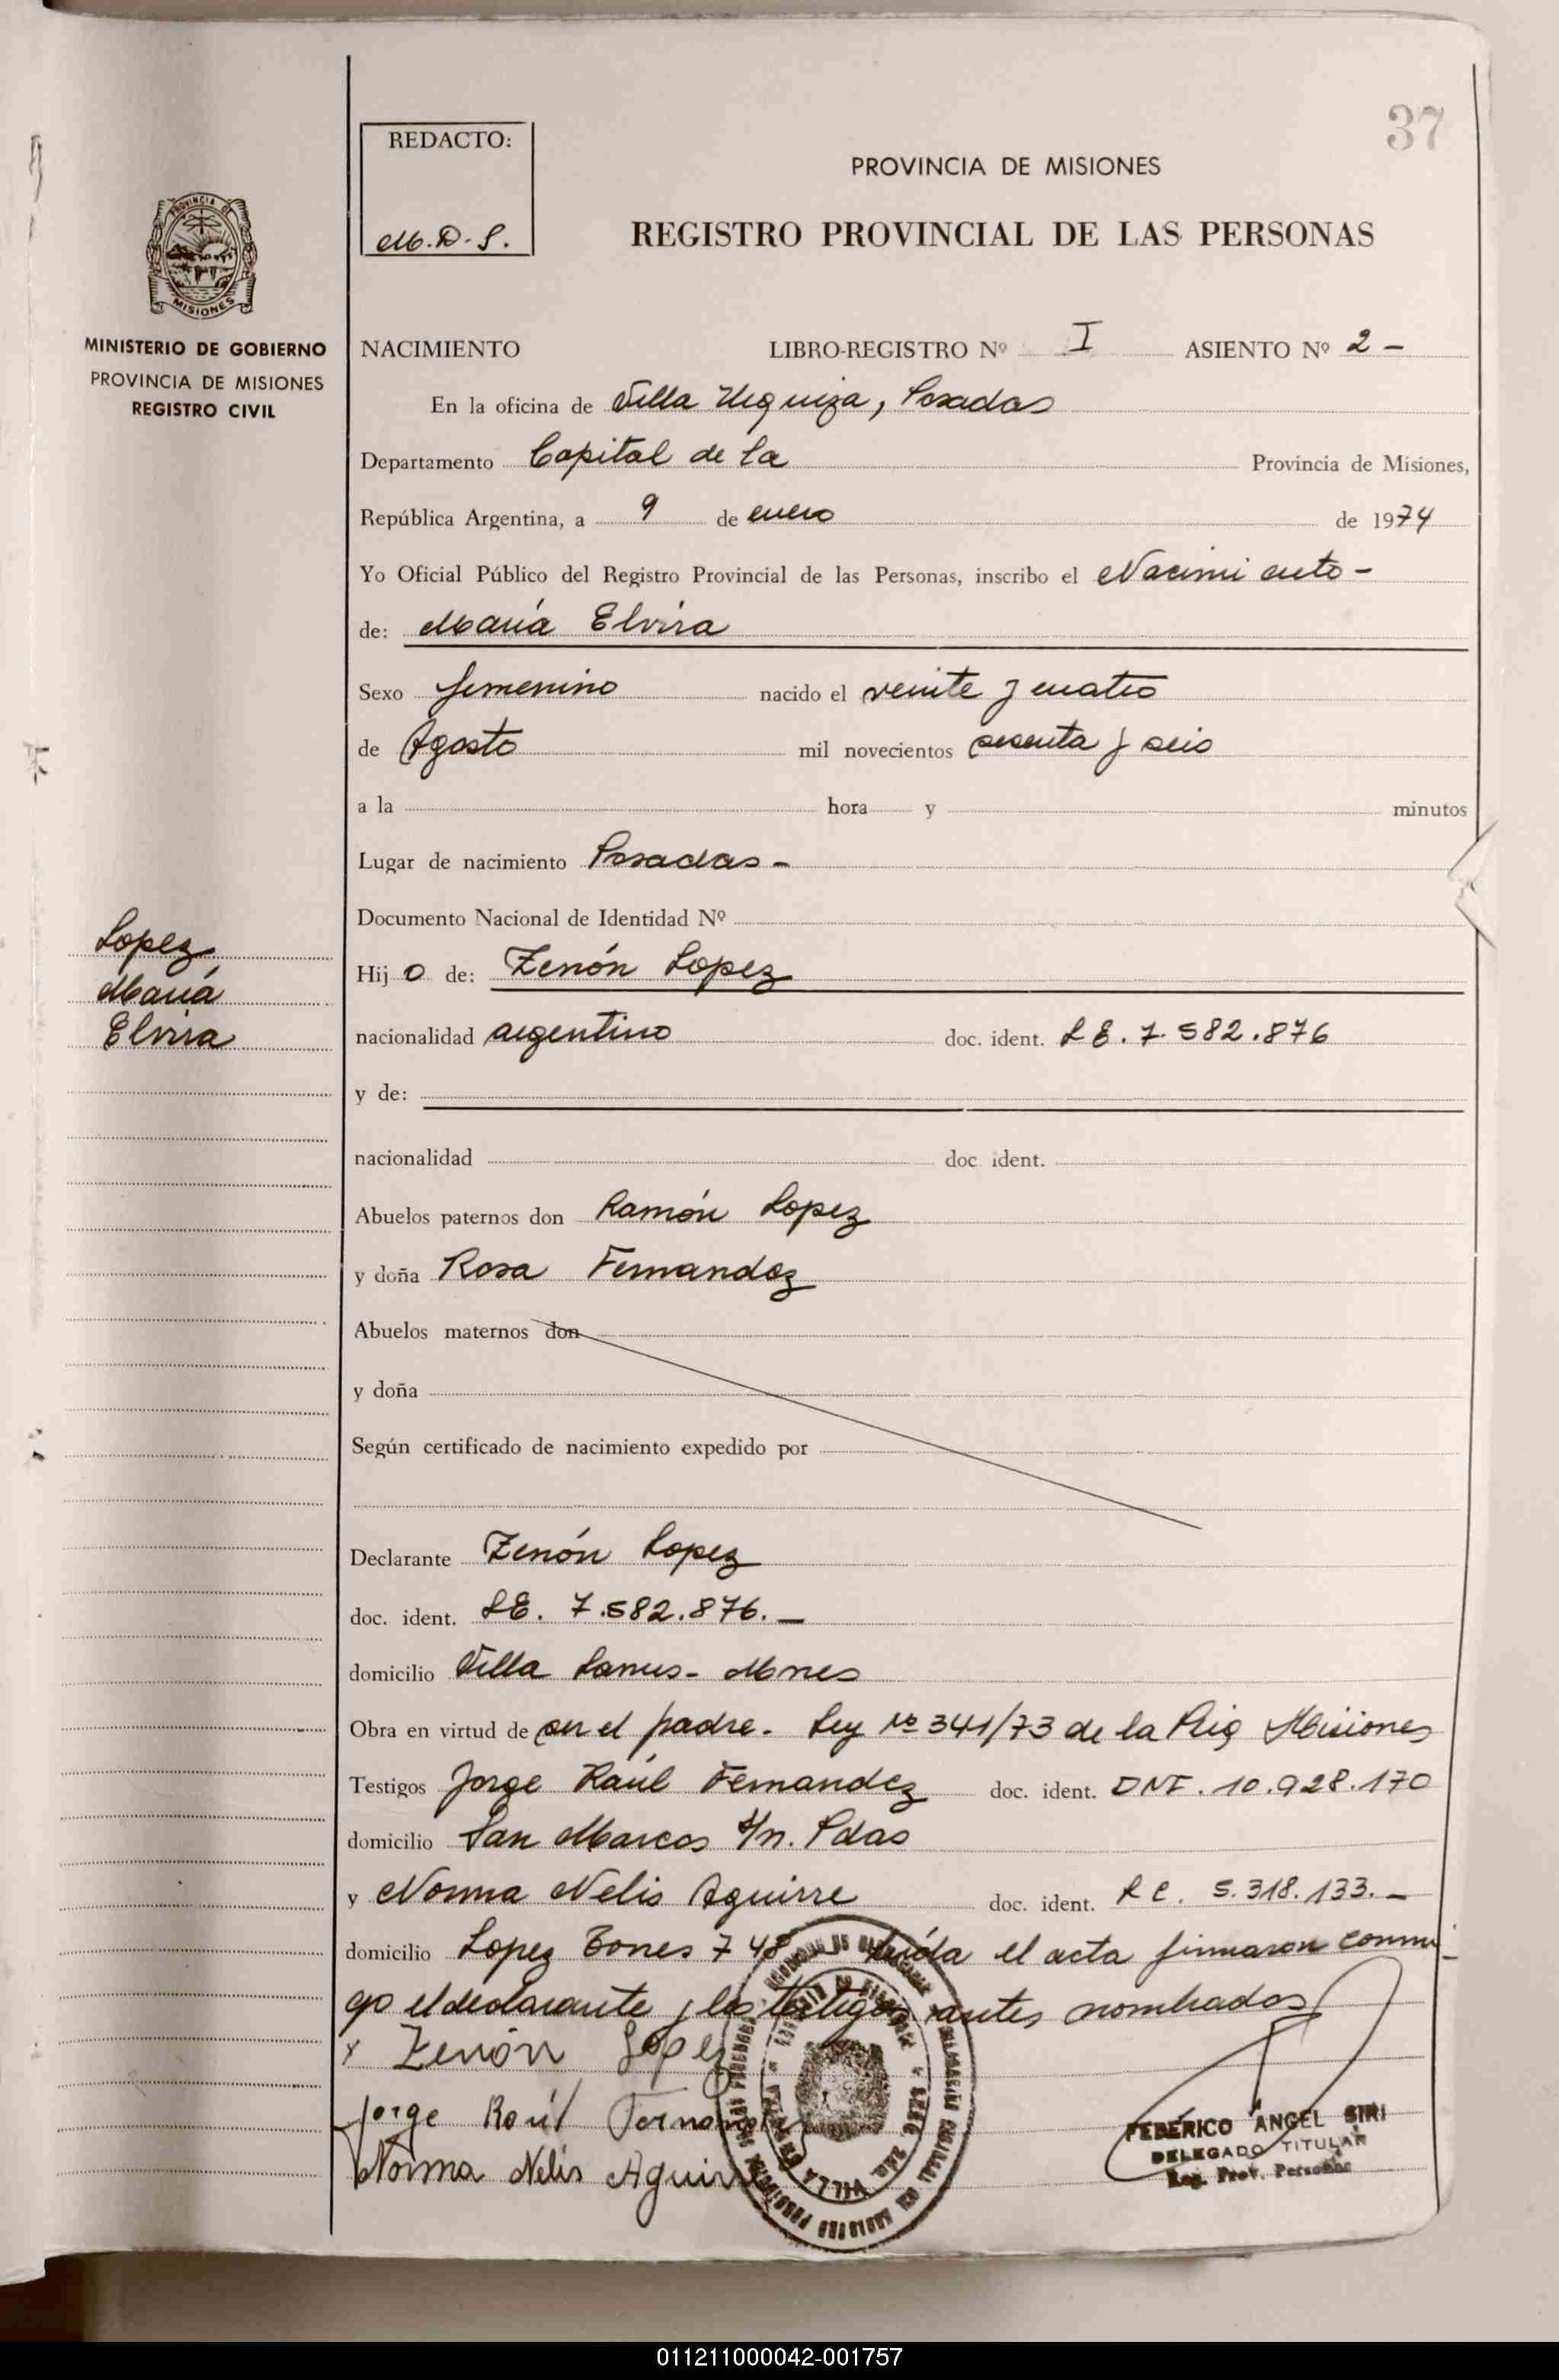 37
REDACTO:
M.D.S.
PROVINCIA DE MISIONES
REGISTRO PROVINCIAL DE LAS PERSONAS
PROVINCIA DE
MISIONES
MINISTERIO DE GOBIERNO
PROVINCIA DE MISIONES
REGISTRO CIVIL
NACIMIENTO LIBRO-REGISTRO Nº I ASIENTO Nº 2 -
En la oficina de Villa Urquiza, Posadas
Departamento Capital de la Provincia de Misiones,
República Argentina, a 9 de enero de 1974
Yo Oficial Público del Registro Provincial de las Personas, inscribo el Nacimiento -
de: María Elvira
Sexo femenino nacido el veinte y cuatro
de Agosto mil novecientos sesenta y seis
a la hora y minutos
Lugar de nacimiento Posadas -
Documento Nacional de Identidad Nº
Lopez
María
Elvira
Hij o de: Zenón Lopez
nacionalidad argentino doc. ident. L E. 7.582.876
y de:
nacionalidad doc. ident.
Abuelos paternos don Ramón Lopez
y doña Rosa Fernandez
Abuelos maternos don
y doña
Según certificado de nacimiento expedido por
Declarante Zenón Lopez
doc. ident. LE. 7.582.876. -
domicilio Villa Lanus - Mnes
Obra en virtud de ser el padre. Ley Nº 341/73 de la Misiones
Testigos Jorge Raúl Fernandez doc. ident. DNI. 10.928.170
domicilio San Marcos s/n. Pdas
y Norma Nelis Aguirre doc. ident. L C. 5.318.133. -
domicilio Lopez Torres 748 Leída el acta firmaron conmi-
go el declarante y los testigos antes nombrados
x Zenón Lopez
Jorge Raúl Fernandez
Norma Nelis Aguirre
VILLA
FEDERICO ÁNGEL SIRI
DELEGADO TITULAR
Reg. Prov. Personas
011211000042-001757